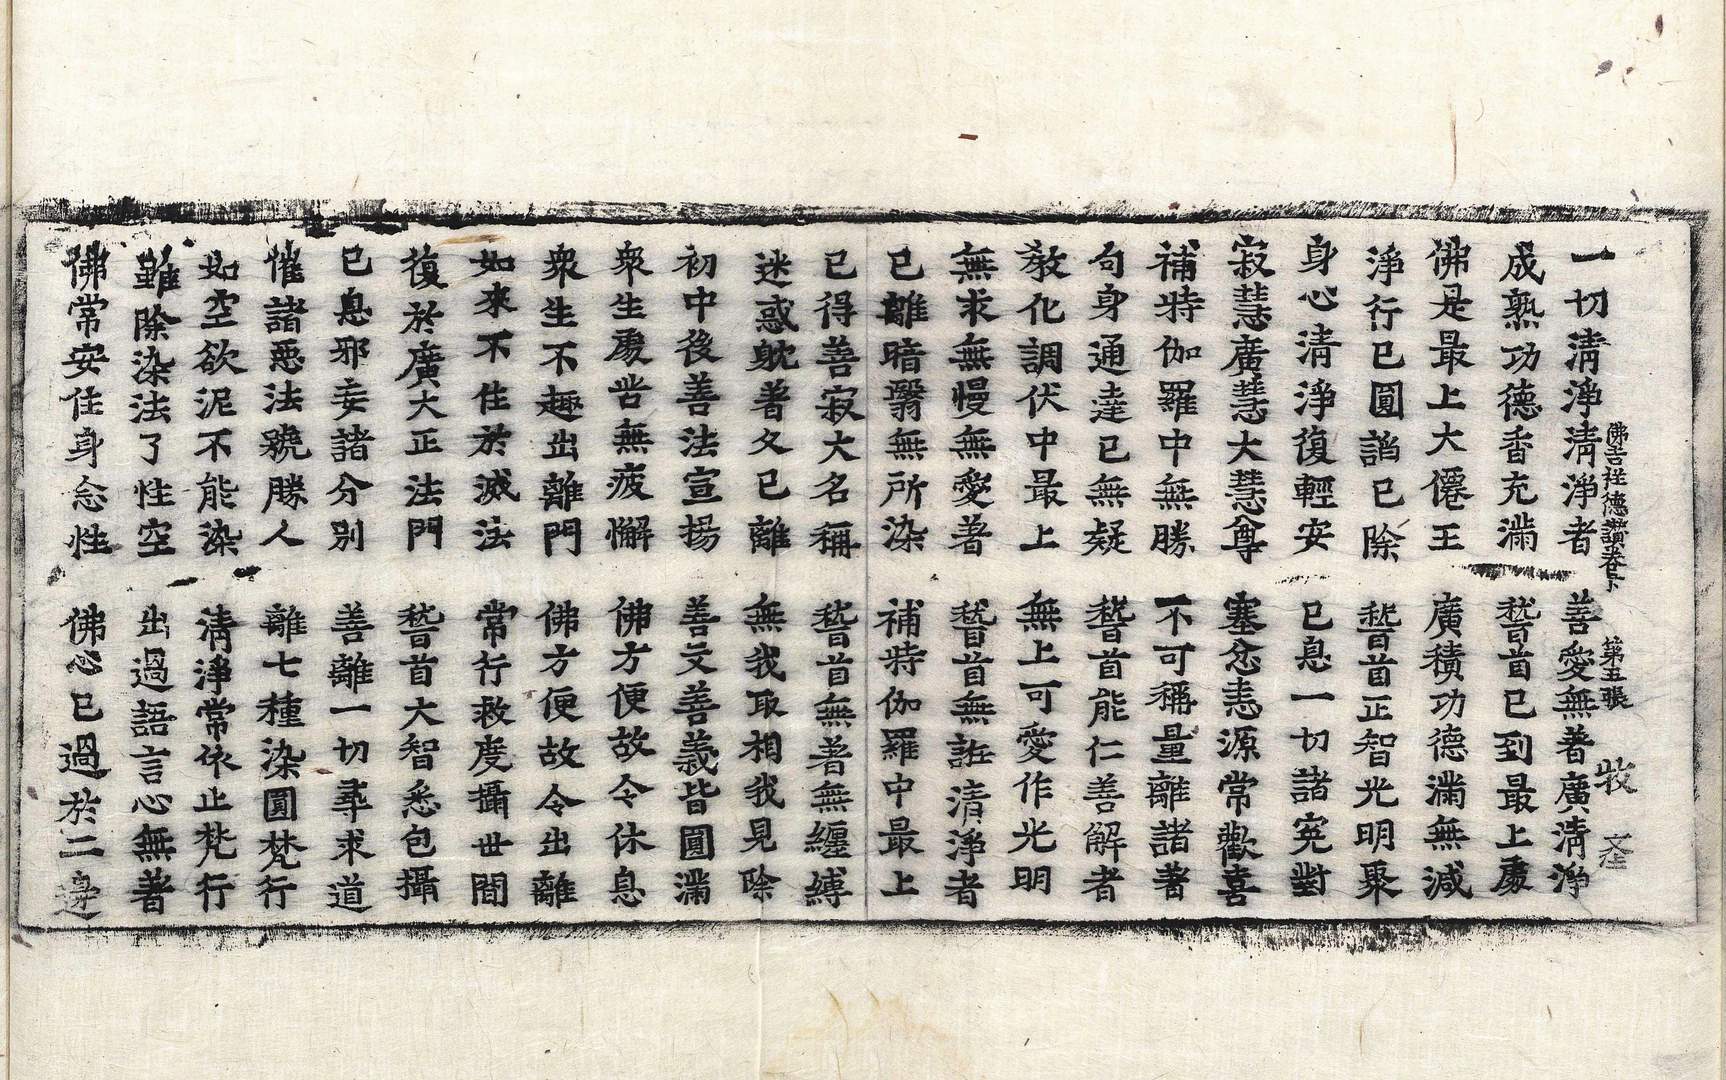 佛吉祥德讚卷下 第五張 牧
一切清淨清淨者 善愛無著廣清淨
成熟功德香充滿 稽首已到最上處
佛是最上大僊王 廣積功德滿無減
淨行已圓諂已除 稽首正智光明聚
身心清淨復輕安 已息一切諸寃對
寂慧廣慧大慧尊 塞忿恚源常歡喜
補特伽羅中無勝 不可稱量離諸著
句身通達已無疑 稽首能仁善解者
教化調伏中最上 無上可愛作光明
無求無慢無愛著 稽首無誑清淨者
已離暗翳無所染 補特伽羅中最上
已得善寂大名稱 稽首無著無纏縛
迷惑躭著久已離 無我取相我見除
初中後善法宣揚 善文善義皆圓滿
衆生處世無疲懈 佛方便故令休息
衆生不趣出離門 佛方便故令出離
如來不住於滅法 常行救度攝世間
復於廣大正法門 稽首大智悉包攝
已息邪妄諸分別 善離一切尋求道
摧諸惡法號勝人 離七種染圓梵行
如空欲泥不能染 清淨常依止梵行
雖除染法了性空 出過語言心無著
佛常安住身念性 佛心已過於二邊